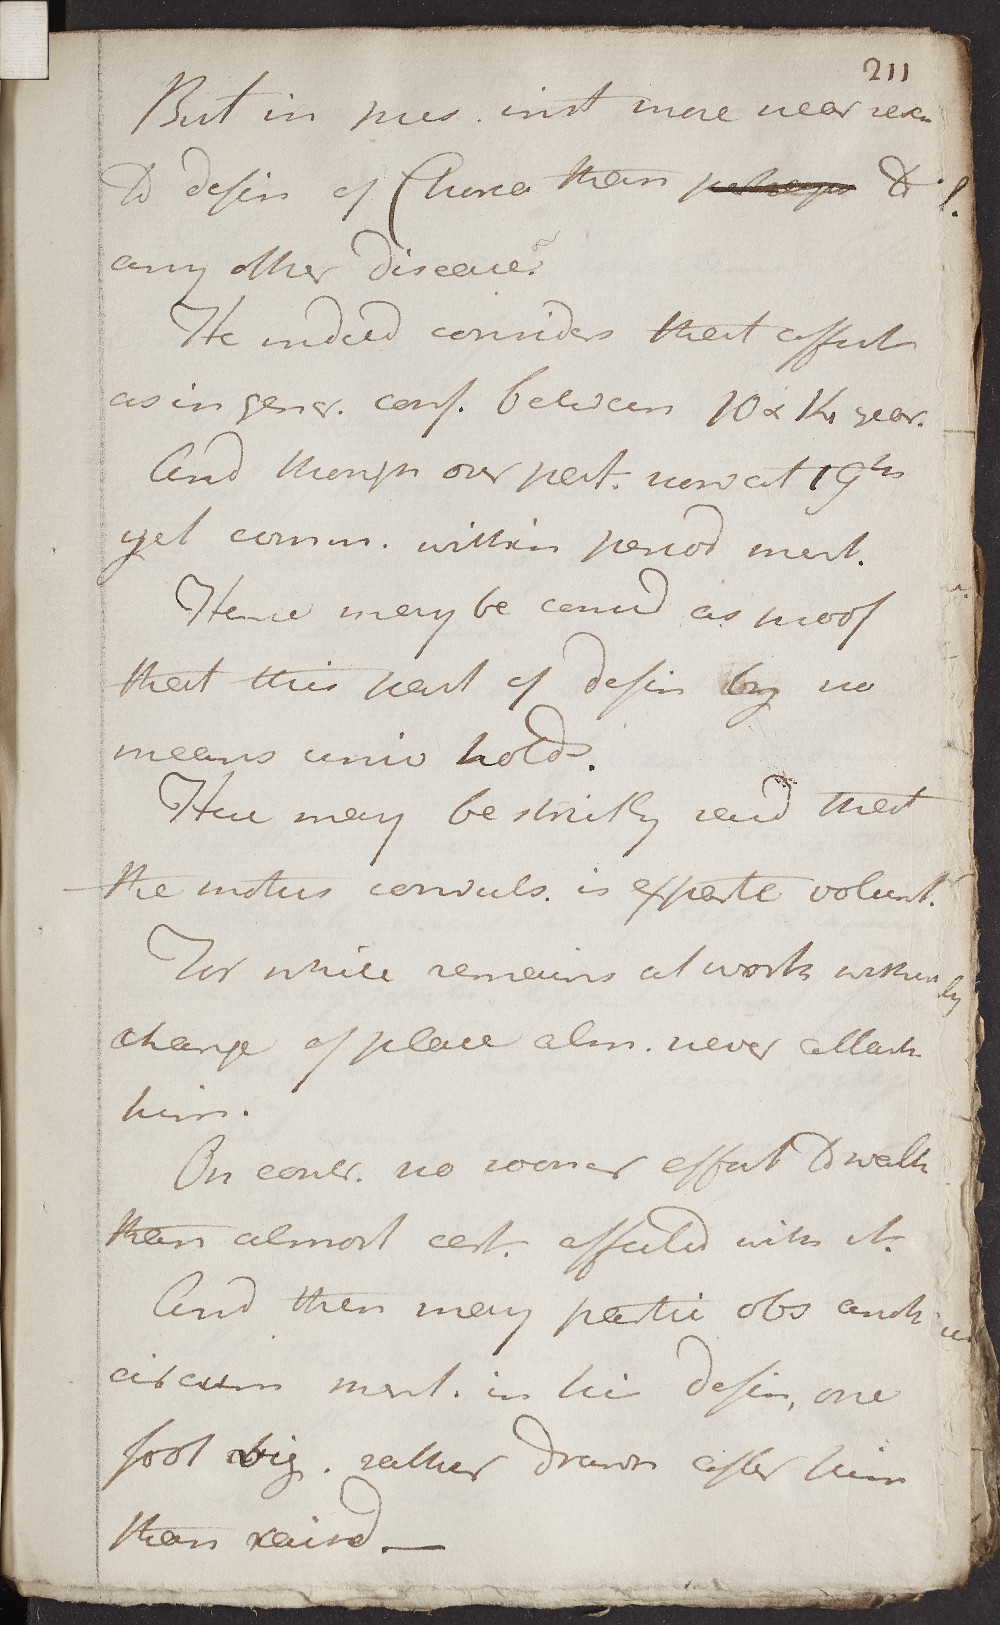 211
But in pres. inst more near resem
to defin of Chorea than perhaps to
any other disease.
He indeed considers that affect
as in gener. conf. between 10 & 14 year.
And though our pat. now at 19th
yet comm. within period ment.
Hence may be consid as proof
that this part of defin by no
means univ holds.
Here may be strictly said that
the motus convuls. is exparte volunt.
For while remains at work without
change of place alm. never attack
him.
On contr. no sooner effort to walk
than almost cert. affected with it.
And then may partic obs anoth
circum ment. in his defin, one
foot rather drawn after him
than raised.—